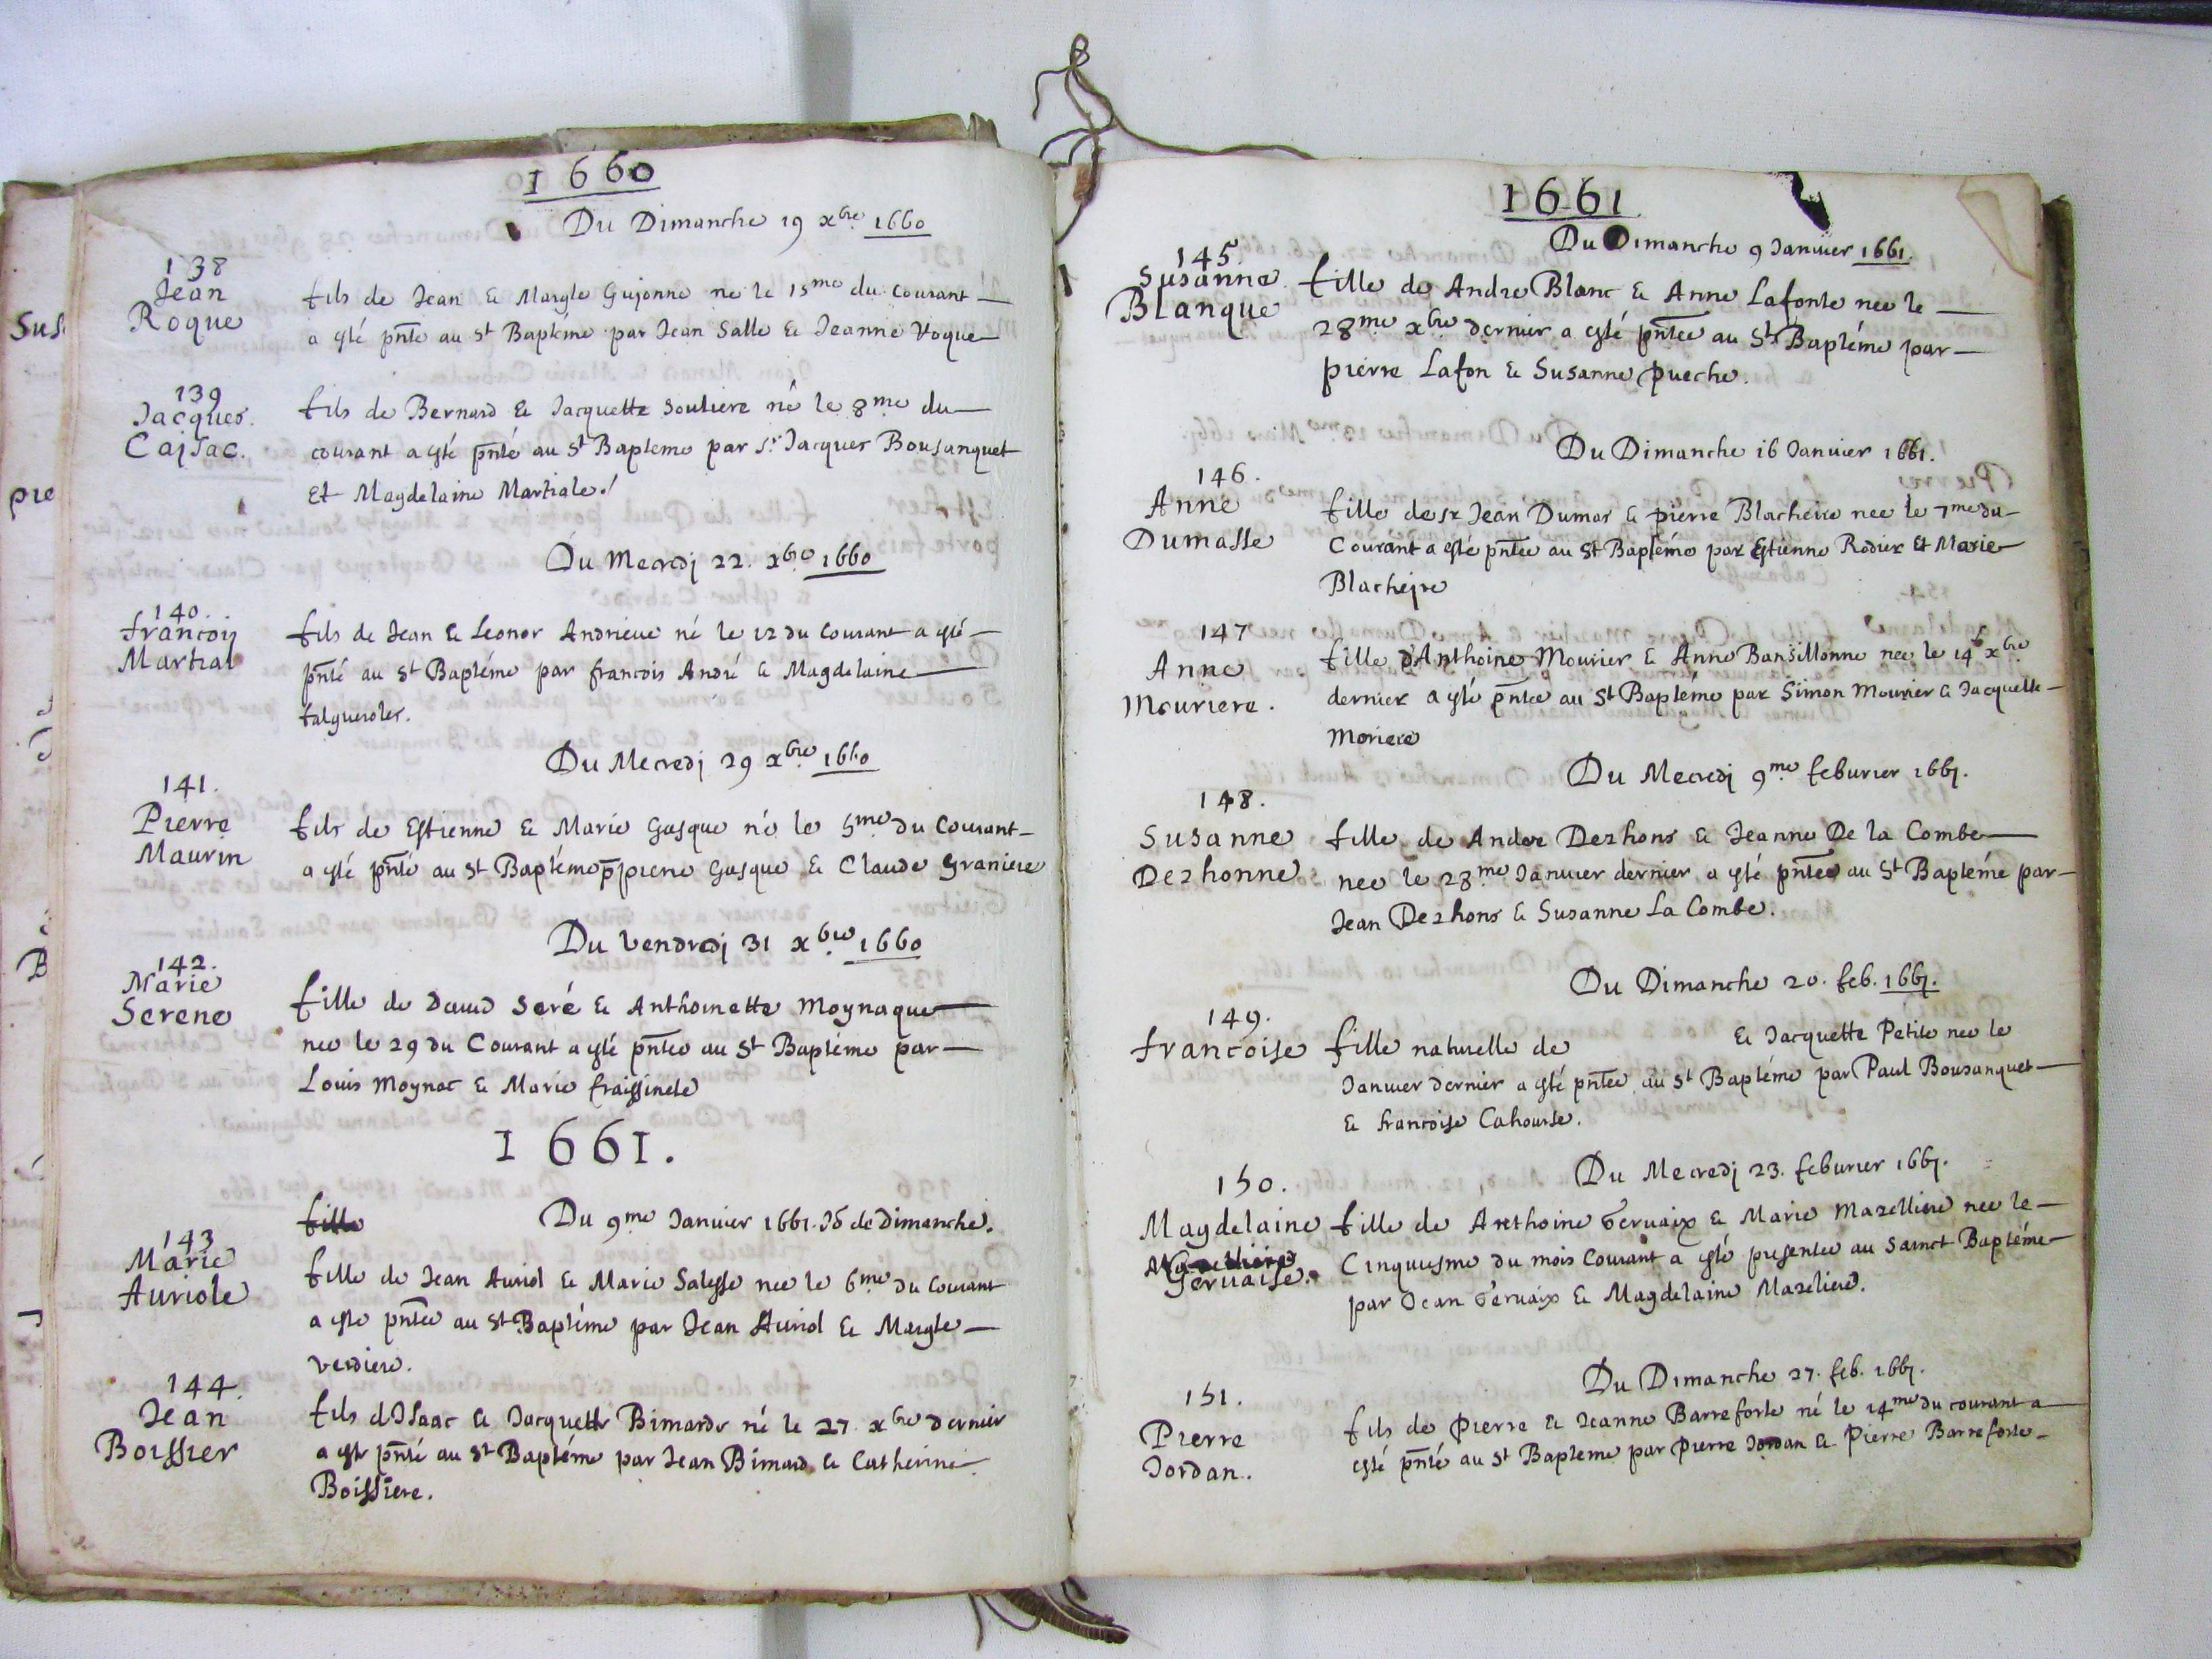 1660
Du Dimanche 19 xbre 1660
138
Jean
Roque
fils de Jean & Margte Gujonne ne le 15me du Courant
a esté pnté au St Bapteme par Jean Salle & Jeanne Roque
139
Jacques
Cajsac.
fils de Bernard & Jacquette Souliere né le 8me du
courant a esté pnté au St Bapteme par Sr Jacques Bousanquet
Et Magdelaine Martiale.
Du Mecredj 22. xbre 1660
140.
francois
Martial
fils de Jean & Leonor Andrieue né le 12 du Courant a esté
pnté au St Baptéme par francois André & Magdelaine
falgueroles.
Du Mecredj 29 xbre 1660
141.
Pierre
Maurin
fils de Estienne & Marie Gasque né le 5me du Courant
a esté pnté au St Baptéme p pierre Gasque & Claude Graniere
Du Vendredj 31 xbre 1660
142.
Marie
Serene
fille de Dauid Seré & Anthoinette Moynaque
nee le 29 du Courant a esté pntee au St Baptéme par
Louis Moynac & Marie fraissinete
1661.
fille
Du 9me Januier 1661. Jo de Dimanche.
143
Marie
Auriole
fille de Jean Auriol & Marie Salesse nee le 6me du Courant
a este pntee au St Baptéme par Jean Auriol & Margte
Verdiere.
144.
Jean
Boissier
fils dIsaac & Jacquette Bimarde né le 27. xbre dernier
a este pnté au St Baptéme par Jean Bimard & Catherine
Boissiere.
1661.
Du Dimanche 9 Januier 1661.
145.
Susanne
Blanque
fille de Andre Blanc & Anne Lafonte nee le
28me xbre dernier a esté pntee au St Baptéme par
pierre Lafon & Susanne pueche.
Du Dimanche 16 Januier 1661.
146.
Anne
Dumasse
fille de sr Jean Dumas & pierre Blacheire nee le 7me du
Courant a esté pntee au St Baptéme par Estienne Rodier Et Marie
Blachejre
147
Anne
Mouriere.
fille d'Anthoine Mourier & Anne Bansillonne nee le 14 xbre
dernier a esté pntee au St Baptéme par Simon Mourier & Jacquette
Moriere
Du Mecredj 9me feburier 1661.
148.
Susanne
Dezhonne
fille de Andre Dezhons & Jeanne De la Combe
nee le 28me Januier dernier a esté pntee au St Baptémé par
Jean Dezhons & Susanne La Combe.
Du Dimanche 20. feb. 1661.
149.
francoise
fille naturelle de & Jacquette Petite nee le
Januier dernier a esté pntee au St Baptéme par Paul Bousanquet
& francoise Cahourse.
Du Mecredj 23. feburier 1661.
150.
Magdelaine
Geruaise.
fille de Anthoine Geruaix & Marie Mazelliere nee le
Cinquiesme du mois Courant a esté presentee au Sainct Baptéme
par Jean Geruaix & Magdelaine Mazeliere.
Du Dimanche 27. feb. 1661.
151.
Pierre
Jordan.
fils de Pierre & Jeanne Barreforte né le 14me du courant a
esté pnté au St Bapteme par pierre Jordan & Pierre Barreforte